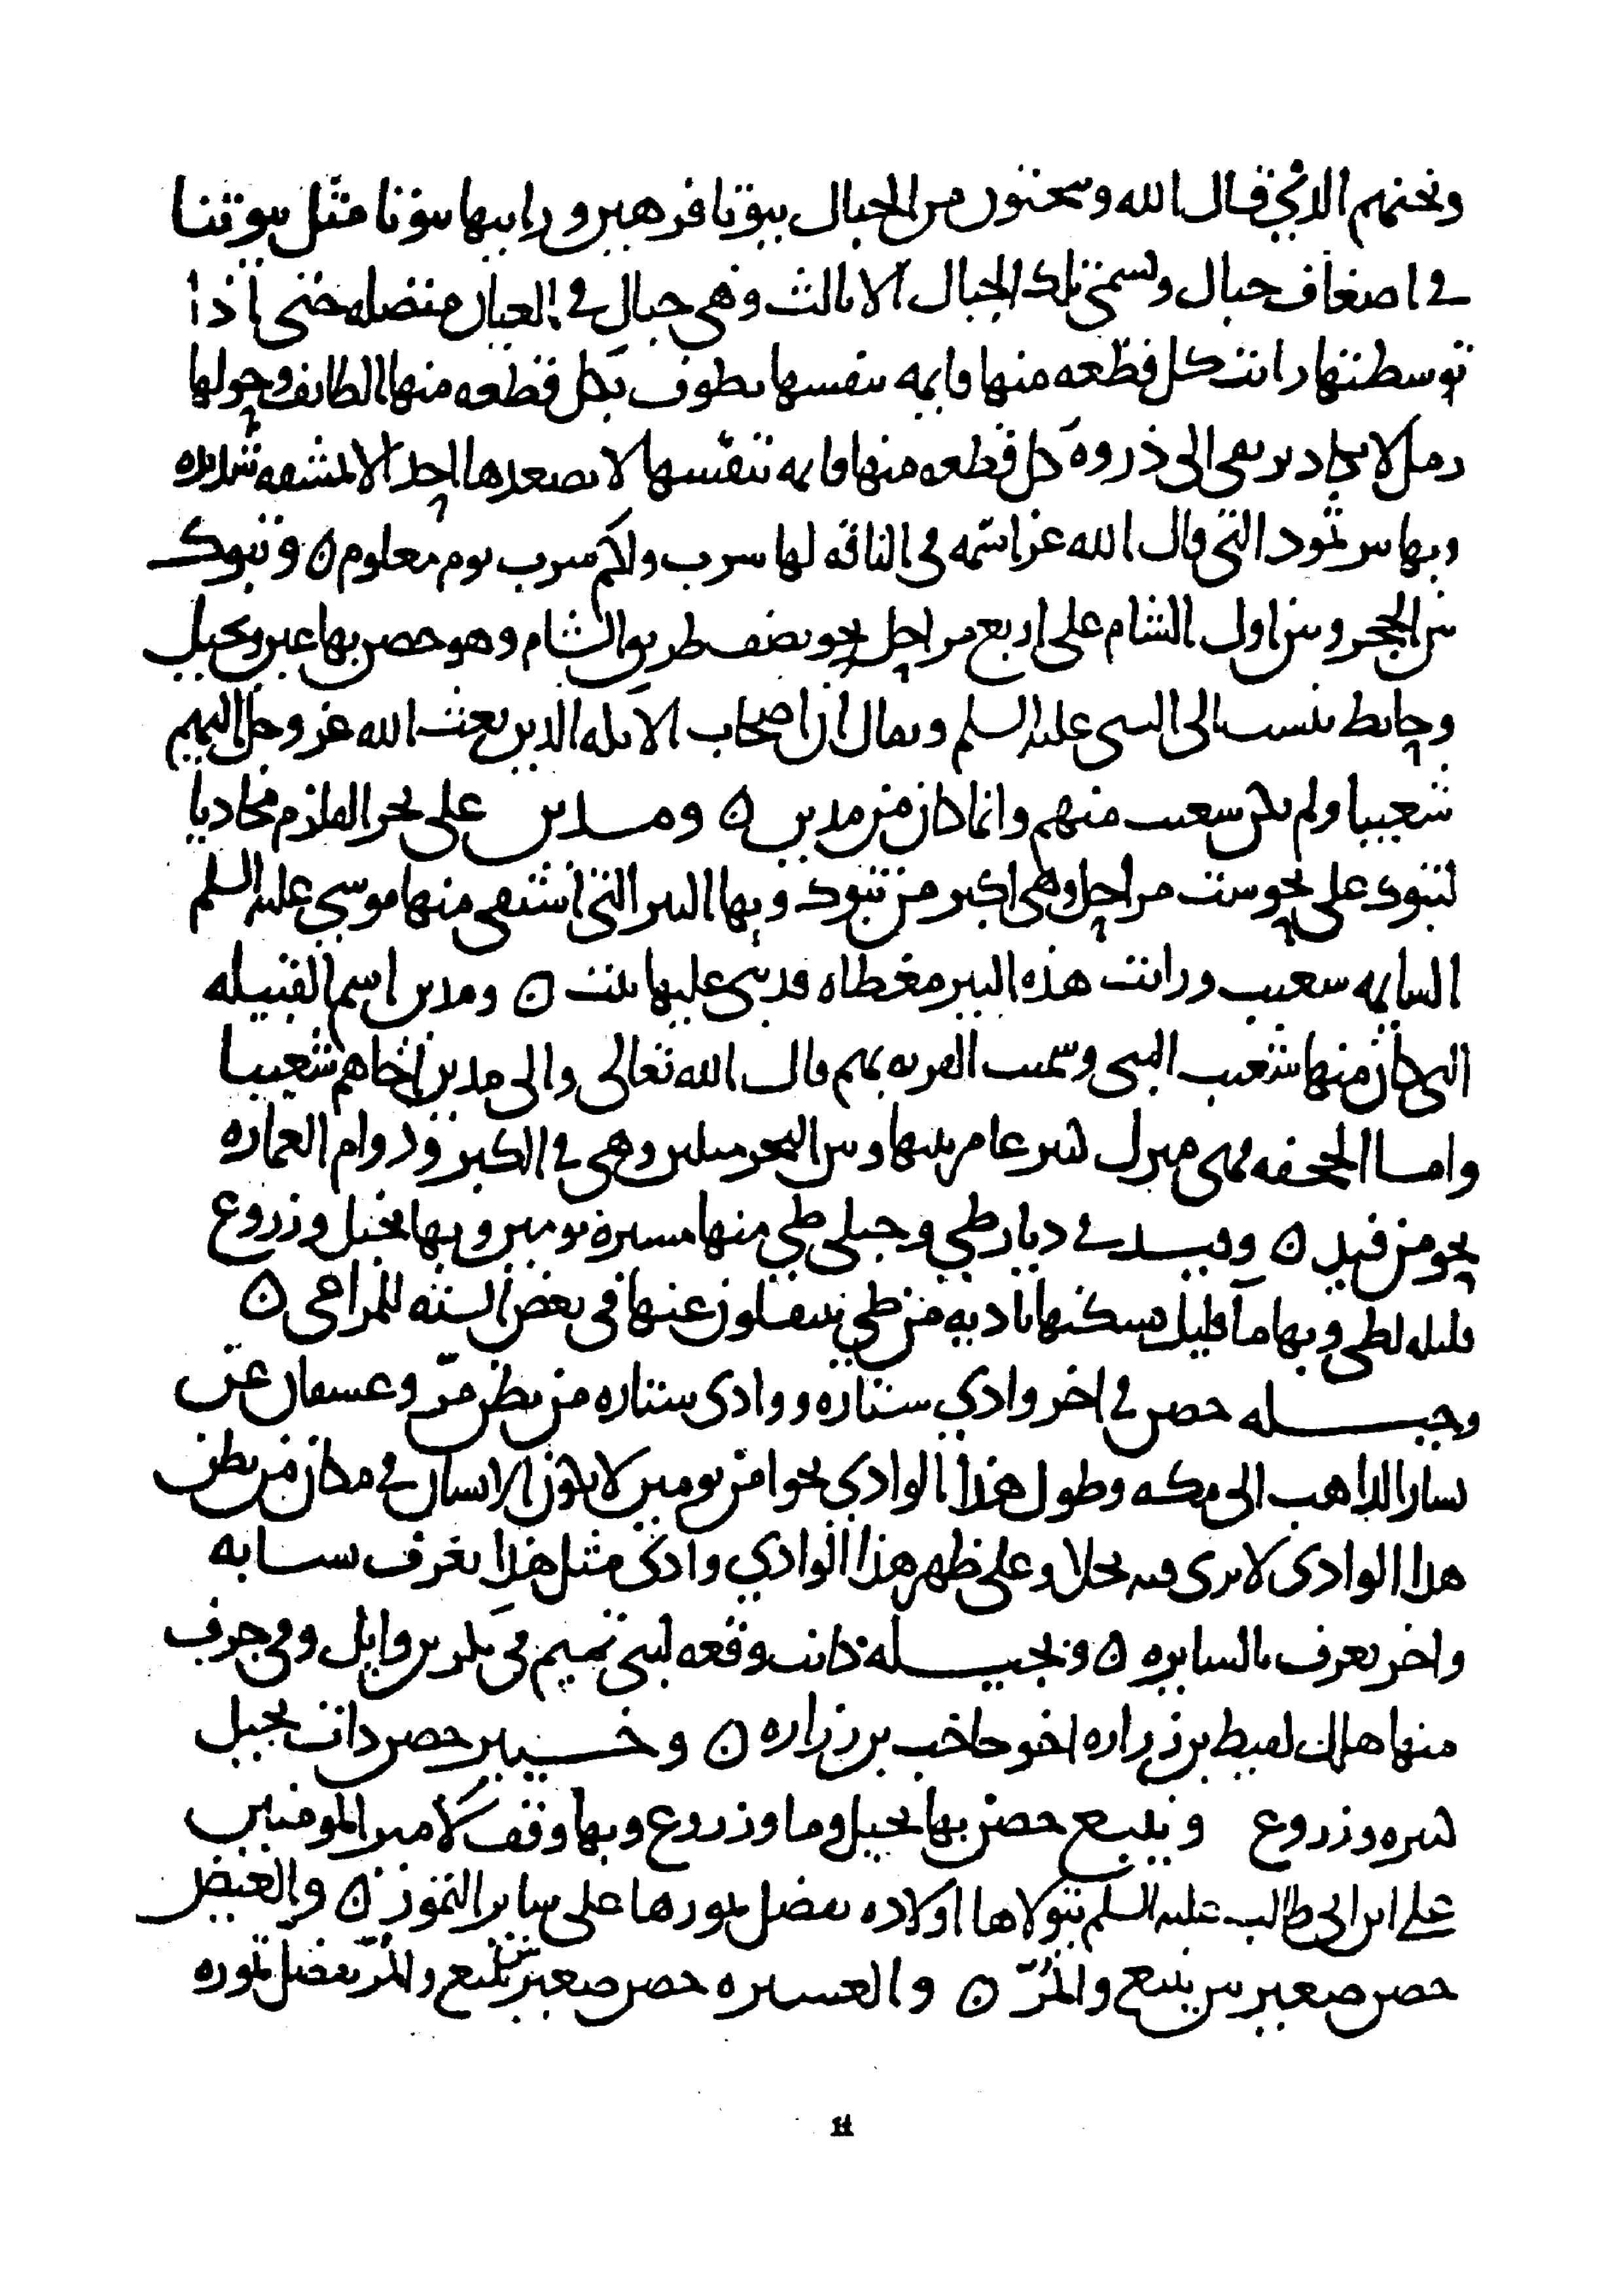 ونحتهم الذي قال الله وتنحتون من الجبال بيوتا فرهين ورايتها بيوتا مثل بيوتنا
في اضعاف جبال وتسمى تلك الجبال الاثالث وهي جبال في العيان متصله حتى اذا
توسطتها رايت كل قطعه منها قايمه بنفسها يطوف بكل قطعه منها الطايف وحولها
رمل لا يكاد يرتقى الى ذروه كل قطعه منها قايمه بنفسها لا يصعدها احد الا بمشقه شديده
وبها بير ثمود التي قال الله عز اسمه في الناقه لها شرب ولكم شرب يوم معلوم ن وتبوك
بين الحجر وبين اول الشام على اربع مراحل نحو نصف طريق الشام وهو حصن بها عين ونخيل
وحايط ينسب الى النبي عليه السلم ويقال ان اصحاب الايكه الذين بعث الله عز وجل اليهم
شعيبا ولم يكن شعيب منهم وانما كان من مدين ن ومدين على بحر القلزم محاديا
لتبوك على نحو ست مراحل وهي اكبر من تبوك وبها البير التي استقى منها موسى عليه السلم
السايمه شعيب ورايت هذه البير مغطاه قد بني عليها بيت ن ومدين اسم القبيله
التي كان منها شعيب النبي وسميت القريه بهم قال الله تعالى والى مدين اخاهم شعيبا
واما الجحفه فهي منزل لسر عامر بينها وبين البحر ميلين وهي في الكبر ودوام العماره
نحو من فيد ن وفيد في ديار طي وجبلي طي منها مسيرة يومين وبها نخيل وزروع
قليله لطي وبها مآ قليل يسكنها باديه من طي ينتقلون عنها في بعض السنه للمراعي ن
وجبله حصن في اخر وادي ستاره ووادى ستاره من بطن مرّ وعسفان عن
يسار الذاهب الى مكه وطول هذا الوادي نحوا من يومين لا يكون الانسان في مكان من بطن
هذا الوادى لا يرى فيه نخلا وعلى ظهر هذا الوادي وادى مثل هذا يعرف بسايه
واخر يعرف بالسايره ن وبجبله كانت وقعه لبني تميم في بكر بن وايل وفي جرف
منها هلك لقيط بن زراره اخو حاجب بن زراره ن وخيبر حصن ذات نخيل
كثيره وزروع وينبع حصن بها نخيل وما وزروع وبها وقف لامير المومنين
علي ابن ابي طالب عليه السلم يتولاها اولاده تفضل تمورها على ساير التمور ن والعيص
حصن صغير بين ينبع والمرّ ن والعشيره حصن صغير بين ينبع والمرّ تفضل تموره